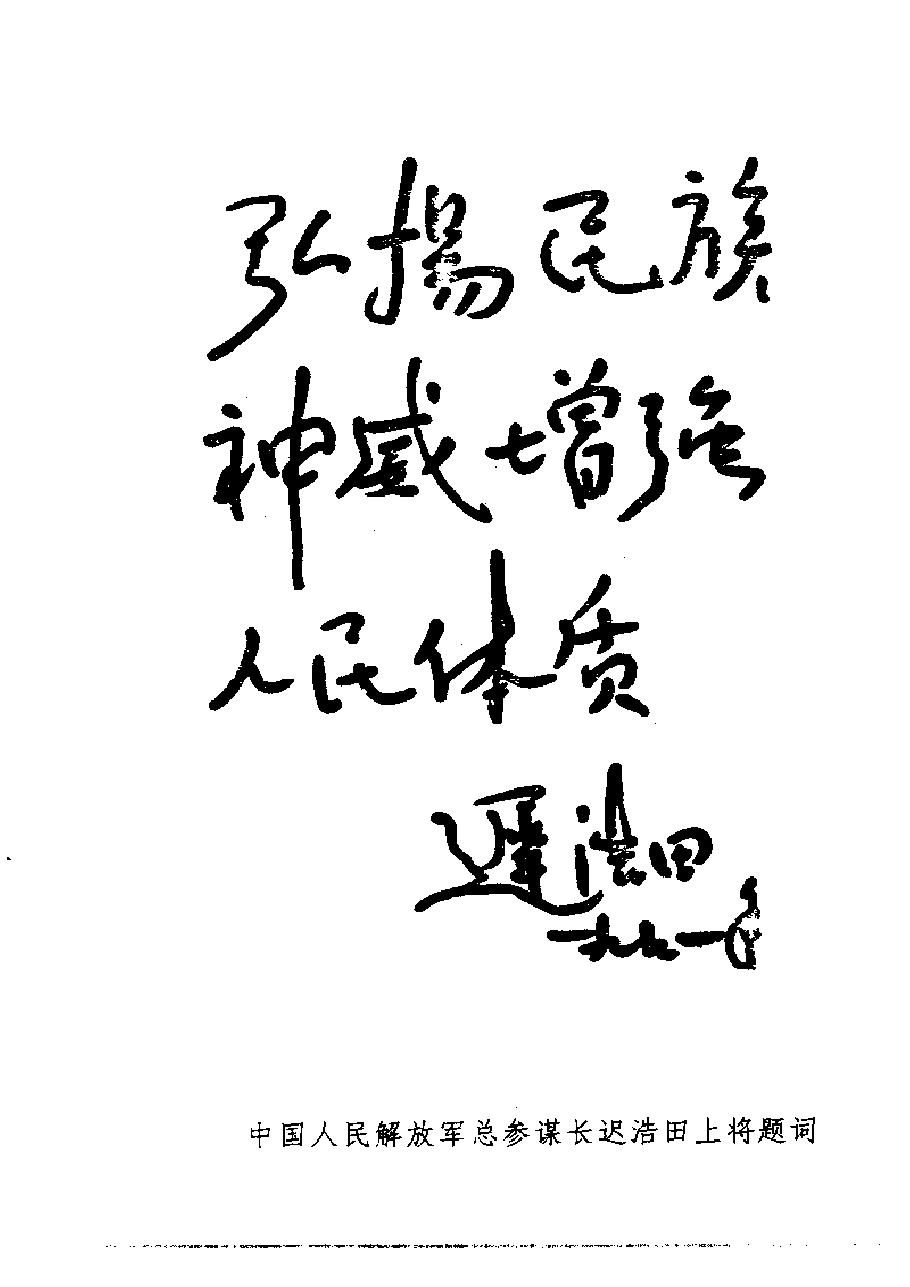 弘揚民族
神威增强
人民体质
遲浩田
一九九一年
中国人民解放军总参谋长迟浩田上将题词